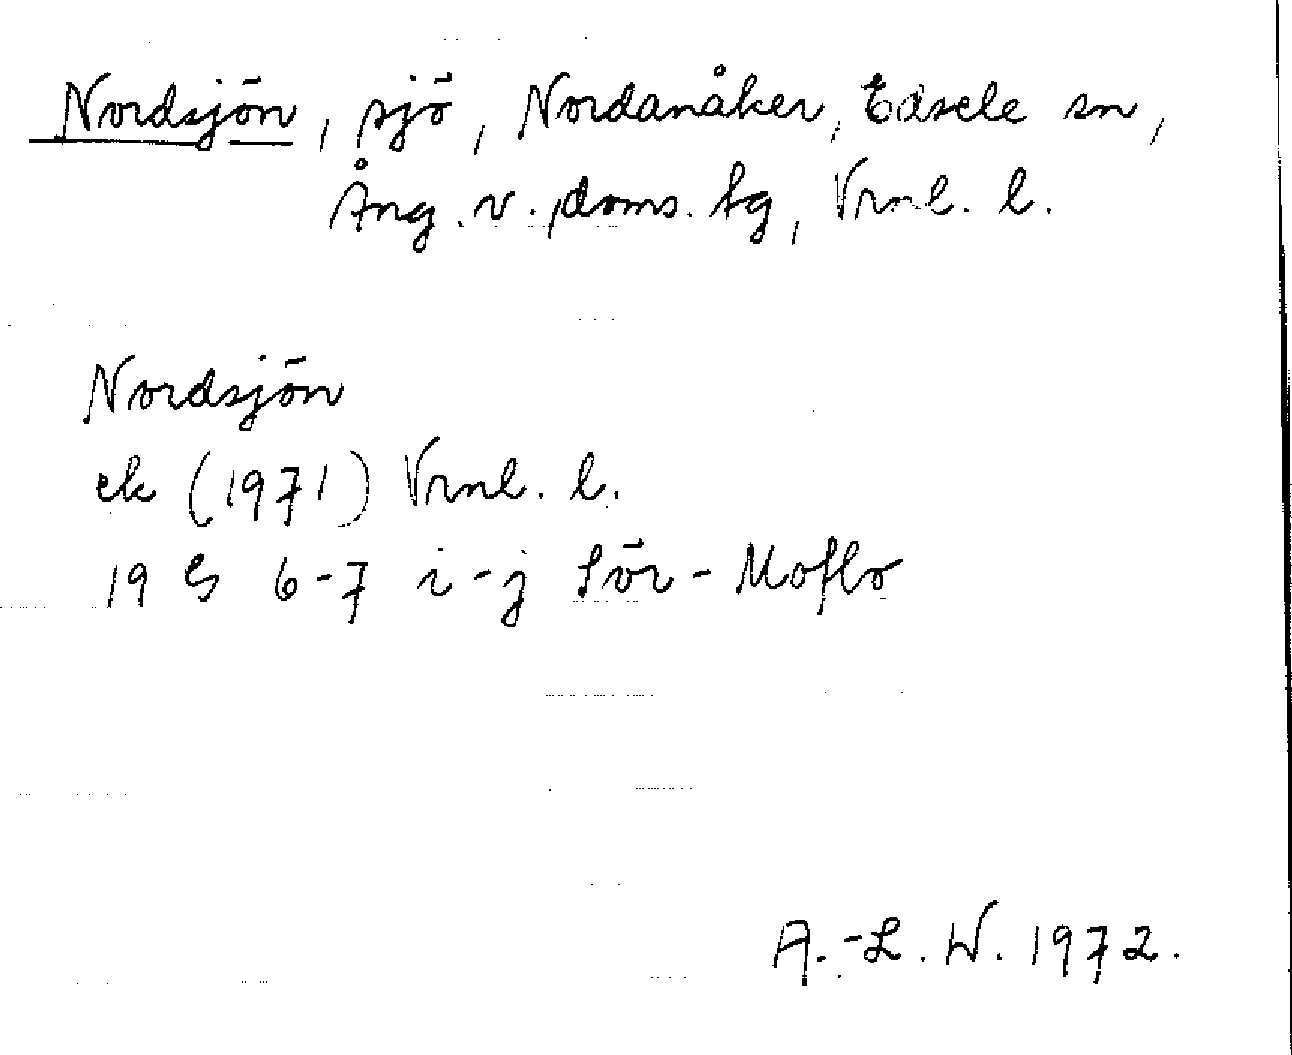 Nordsjön, sjö, Nordanåker, Edsele sn,
Ång. v. doms. tg, Vrnl. l.
Nordsjön
ek (1971) Vrnl. l.
19 G 6-7 i-j Sör-Moflo
A.-L. W. 1972.